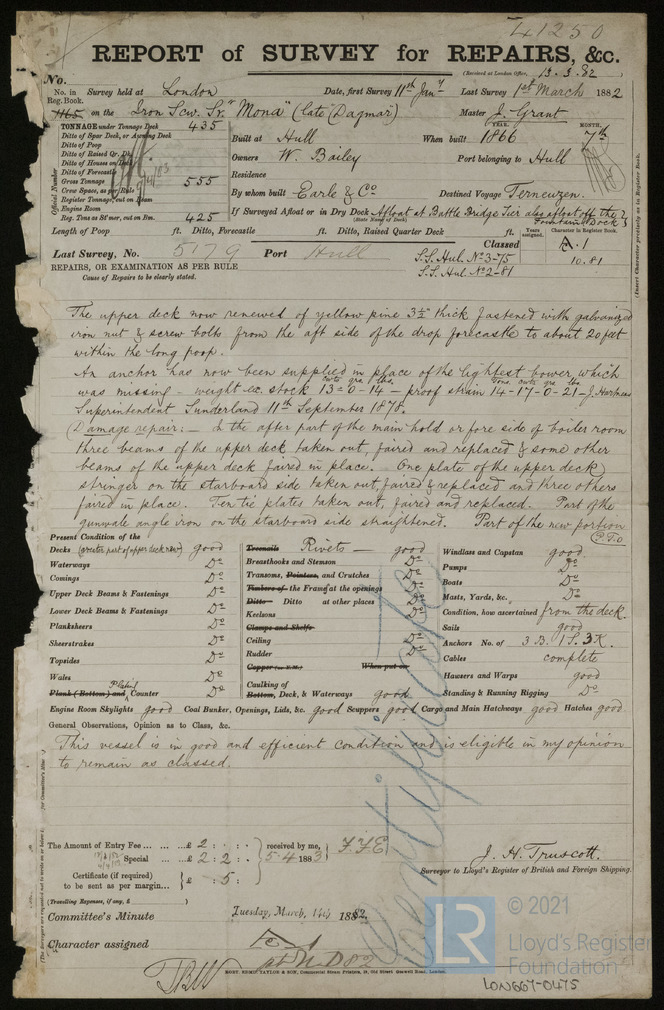 41250
REPORT of SURVEY for REPAIRS, &c.
(Received at London Office, 13.3.82)
No.
No. in Reg. Book. Survey held at London Date, first Survey 11th Jany Last Survey 1st March 1882
1165 on the Iron Scw. Sr. "Mona" (late "Dagmar") Master J. Grant
TONNAGE under Tonnage Deck 435
Ditto of Spar Deck, or Awning Deck
Ditto of Poop
Ditto of Raised Qr. Dk
Ditto of Houses on Deck
Ditto of Forecastle
Gross Tonnage 555
Crew Space, as per Rule
Register Tonnage, cut on Beam
Engine Room
Reg. Tons as St'mer, cut on Bm. 425
Official Number
Built at Hull When built YEAR. 1866 MONTH. 7th
Owners W. Bailey Port belonging to Hull
Residence
By whom built Earle & Co. Destined Voyage Terneuzen.
If Surveyed Afloat or in Dry Dock Afloat at Battle Bridge Tier also afloat off the
(State Name of Dock) Fountain Dock
Length of Poop ft. Ditto, Forecastle ft. Ditto, Raised Quarter Deck ft.
Years assigned. Character in Register Book.
Last Survey, No. 5179 Port Hull Classed A.1
S.S. Hul. No. 3-75 10.81
S.S. Hul. No. 2-81
REPAIRS, OR EXAMINATION AS PER RULE
Cause of Repairs to be clearly stated.
(Insert Character precisely as in Register Book.
The upper deck now renewed of yellow pine 3½" thick fastened with galvanized
iron nut & screw bolts from the aft side of the drop forecastle to about 20 feet
within the long poop.
An anchor has now been supplied in place of the lightest bower which
was missing - weight ex. stock 13 cwts - 0 qrs - 14 lbs - proof strain 14 tons - 17 cwts - 0 qrs - 21 lbs - J. Hartness
Superintendent Sunderland 11th September 1878.
Damage repair: - In the after part of the main hold or fore side of boiler room
three beams of the upper deck taken out, faired and replaced & some other
beams of the upper deck faired in place. One plate of the upper deck
stringer on the starboard side taken out, faired & replaced and three others
faired in place. Ten tie plates taken out, faired and replaced. Part of the
gunwale angle iron on the starboard side straightened. Part of the new portion
P.T.O
Present Condition of the
Decks (greater part of upper deck new) good
Waterways Do
Comings Do
Upper Deck Beams & Fastenings Do
Lower Deck Beams & Fastenings Do
Planksheers Do
Sheerstrakes Do
Topsides Do
Wales Do
Plank (Bottom) and Plating Counter Do
Treenails Rivets - good
Breasthooks and Stemson Do
Transoms, Pointers, and Crutches Do
Timbers of the Frame at the openings Do
Ditto Ditto at other places Do
Keelsons Do
Clamps and Shelfs
Ceiling Do
Rudder Do
Copper (or Y.M.) When put on
Caulking of
Bottom, Deck, & Waterways good
Windlass and Capstan good
Pumps Do
Boats Do
Masts, Yards, &c. Do
Condition, how ascertained from the deck.
Sails good
Anchors No. of 3 B. 1 S. 3 K.
Cables complete
Hawsers and Warps good
Standing & Running Rigging Do
Engine Room Skylights good Coal Bunker, Openings, Lids, &c. good Scuppers good Cargo and Main Hatchways good Hatches good
General Observations, Opinion as to Class, &c.
This vessel is in good and efficient condition and is eligible in my opinion
to remain as classed.
Certificate
The Amount of Entry Fee ... £ 2 : :
Special ... £ 2 : 2 :
received by me,
5.4 1883
Certificate (if required) to be sent as per margin... £ : 5 :
(Travelling Expenses, if any, £ )
J. H. Truscott.
Surveyor to Lloyd's Register of British and Foreign Shipping.
Committee's Minute Tuesday, March, 14th 1882.
Character assigned
© 2021
LR
Lloyd's Register
Foundation
LON667-0475